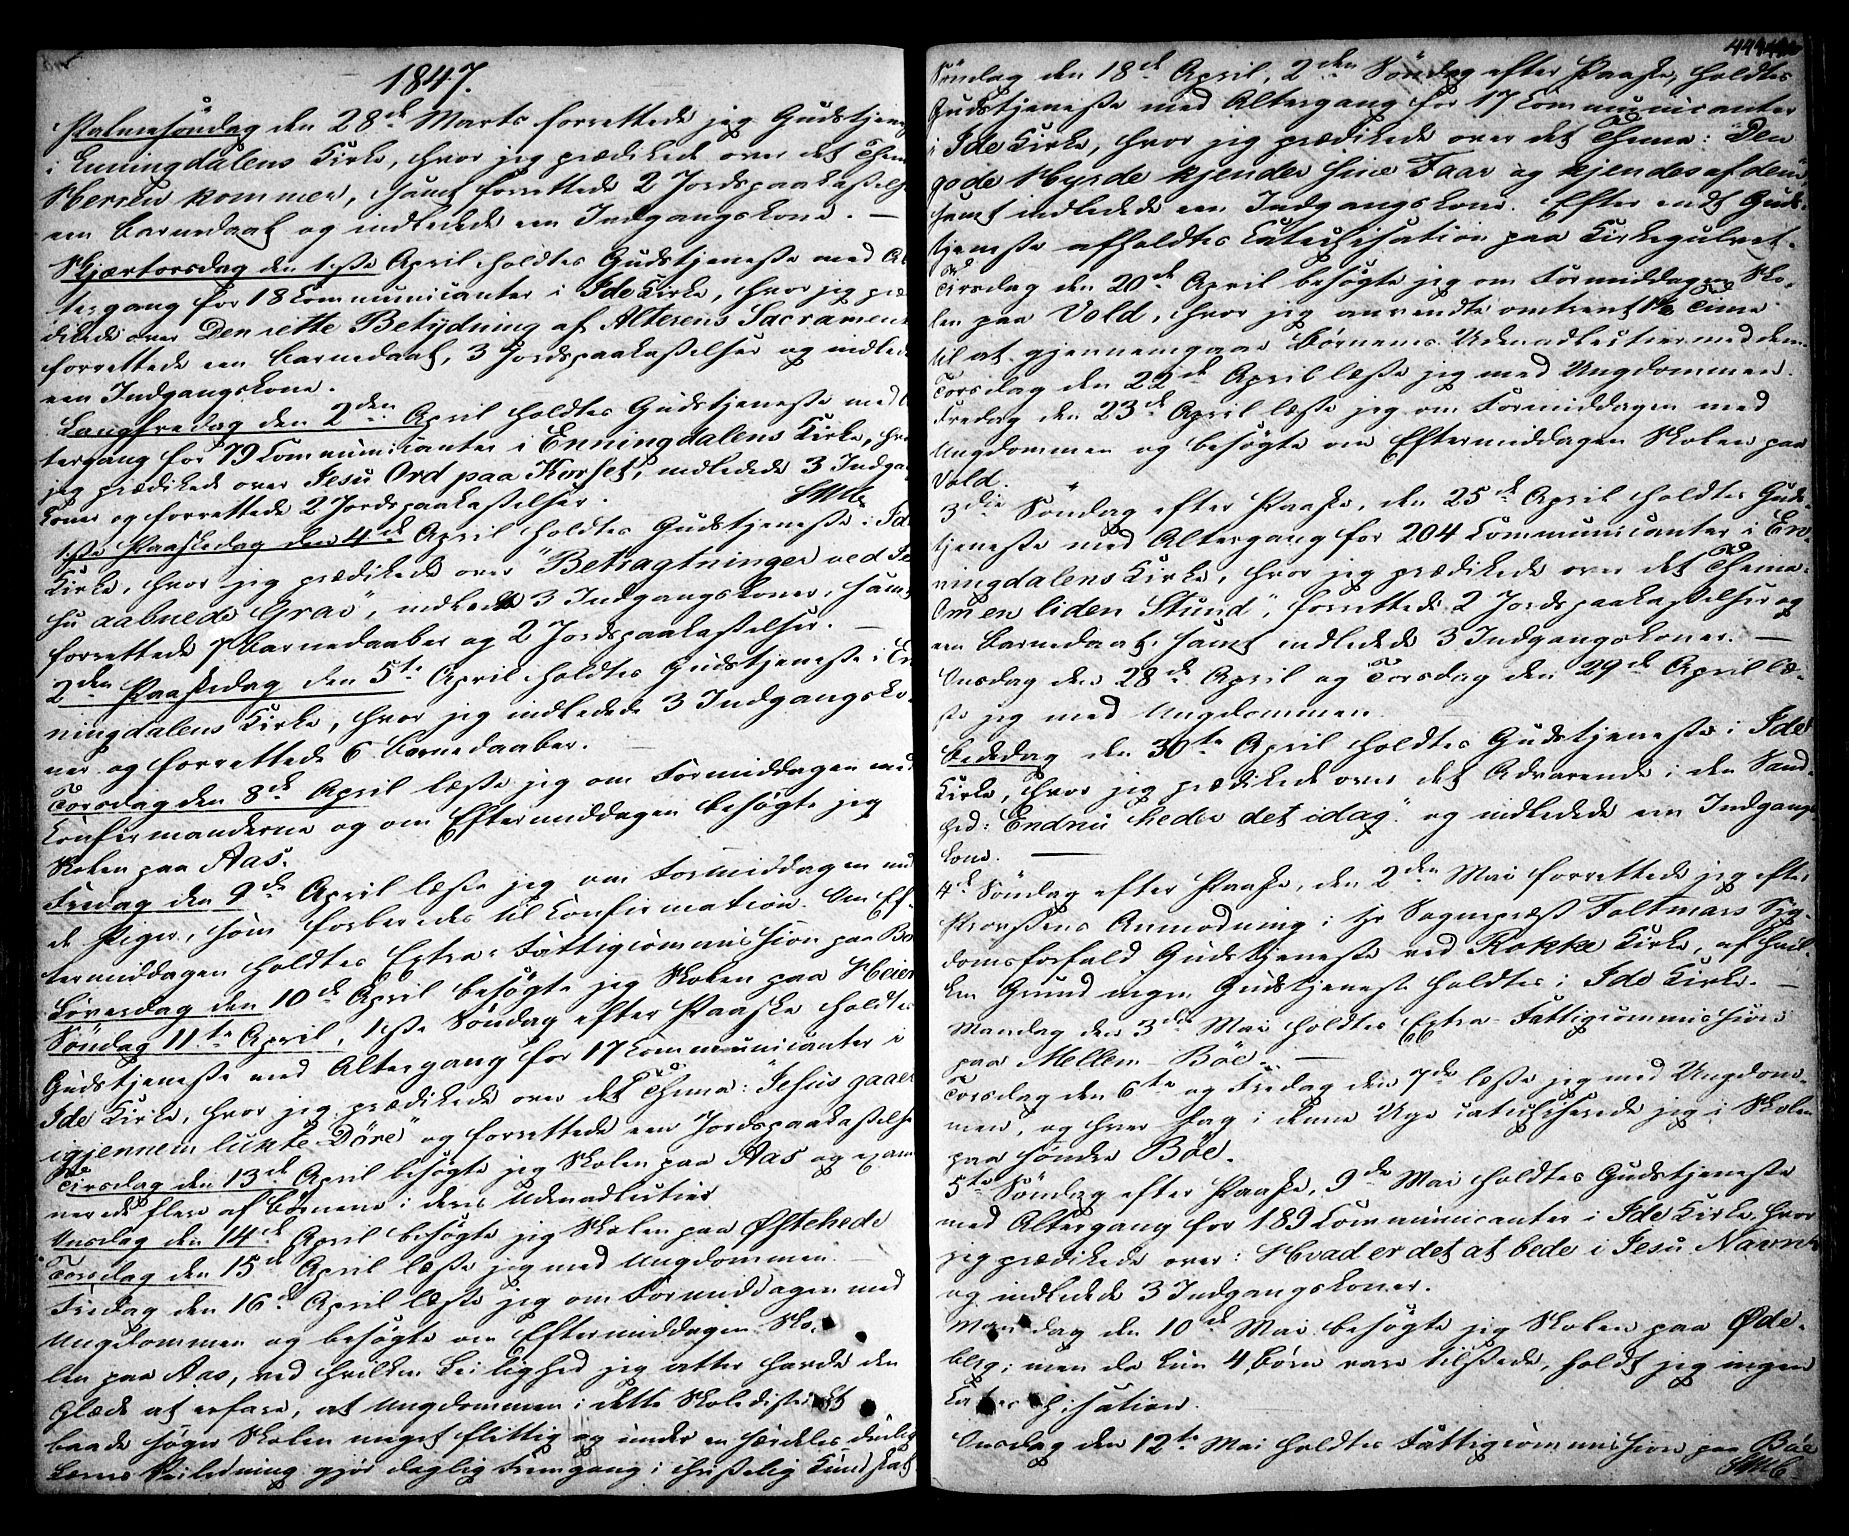 1847.
Palmesöndag den 28de Marts forrettede jeg Gudstjen
i Enningdalens Kirke, hvor jeg prædikede over det Thema
Herren kommer, samt forrettede 2 Jordspaakastelser
een Barnedaab og indledede een Indgangskone. —
Skjærtorsdag den 1ste April holdtes Gudstjeneste med Al
tergang for 18 Communicanter i Ide Kirke, hvor jeg præ
dikede over Den rette Betydning af Alterens Sacrament
forrettede een Barnedaab, 3 Jordspaakastelser og indlede
een Indgangskone.
Langfredag den 2den April holdtes Gudstjeneste med
tergang for 79 Communicanter i Enningdalens Kirke, hvor
jeg prædikede over Jesu Ord paa Korset, indledede 3 Indgangs
koner og forrettede 2 Jordspaakastelser.
1ste Paaskedag den 4de April holdtes Gudstjeneste i Ide
Kirke, hvor jeg prædikede over "Betragtninger ved Je
su aabnede Grav", indledede 3 Indgangskoner, samt
forrettede 7 Barnedaaber og 2 Jordspaakastelser. —
2den Paaskedag den 5te April holdtes Gudstjeneste i En
ningdalens Kirke, hvor jeg indledede 3 Indgangsko-
ner og forrettede 6 Barnedaaber.
Torsdag den 8de April læste jeg om Formiddagen med
Confirmanderne og om Eftermiddagen besøgte jeg
Skolen paa Aas.
Fredag den 9de April læste jeg om Formiddagen med
de Piger, som forberedes til Confirmation. Om Ef-
termiddagen holdtes Extra-Fattigcommission paa Bö
Löverdag den 10de April besøgte jeg Skolen paa Heier
Söndag 11te April, 1ste Söndag efter Paaske holdtes
Gudstjeneste med Altergang for 17 Communicanter i
Ide Kirke, hvor jeg prædikede over det Thema: "Jesus gaaer
igjennem lukte Döre" og forrettede een Jordspaakastelse
Tirsdag den 13de April besøgte jeg Skolen paa Aas og exami
nerede flere af Børnene i deres Udenadlectier
Onsdag den 14de April besøgte jeg Skolen paa Østehede
Torsdag den 15de April læste jeg med Ungdommen.
Fredag den 16de April læste jeg om Formiddagen med
Ungdommen og besøgte om Eftermiddagen Sko-
len paa Aas, ved hvilken Leilighed jeg atter havde den
Glæde at erfare, at Ungdommen i dette Skoledistrikt
baade søger Skolen meget flittig og under en særdeles duelig
Lærers Veiledning gjør daglig Fremgang i christelig Kundskab
Söndag den 18de April, 2den Söndag efter Paaske, holdtes
Gudstjeneste med Altergang for 17 Communicanter
i Ide Kirke, hvor jeg prædikede over det Thema: Den
gode Hyrde kjender sine Faar og kjendes af dem
samt indledede een Indgangskone. Efter endt Guds-
tjeneste afholdtes Catechisation paa Kirkegulvet.
Tirsdag den 20de April besøgte jeg om Formiddagen Sko-
len paa Vold, hvor jeg anvendte omtrent 1½ Time
til at gjennemgaae Børnenes Udenadlectier med dem.
Torsdag den 22de April læste jeg med Ungdommen.
Fredag den 23de April læste jeg om Formiddagen med
Ungdommen og besøgte om Eftermiddagen Skolen paa
Vold.
3die Söndag efter Paaske, den 25de April holdtes Guds-
tjeneste med Altergang for 204 Communicanter i En-
ningdalens Kirke, hvor jeg prædikede over det Thema:
Om en liden Stund", forrettede 2 Jordspaakastelser og
een Barnedaab, samt indledede 3 Indgangskoner. —
Onsdag den 28de April og Torsdag den 29de April læ-
ste jeg med Ungdommen.
Bededag den 30te April holdtes Gudstjeneste i Ide
Kirke, hvor jeg prædikede over det Advarende i den Sand-
hed: "Endnu heder det idag" og indledede een Indgangs
kone. —
4de Söndag efter Paaske, den 2den Mai forrettede jeg efter
Provstens Anmodning i Hr Sognepræst Foltmars Syg-
domsforfald Gudstjeneste ved Rokke Kirke, af hvil-
ken Grund ingen Gudstjeneste holdtes i Ide Kirke. —
Mandag den 3die Mai holdtes Extra-Fattigcommission
paa Mellem-Böe. —
Torsdag den 6te og Fredag den 7de læste jeg med Ungdom-
men, og hver Dag i denne Uge catechiserede jeg i Skolen
paa søndre Böe.
5te Söndag efter Paaske, 9de Mai holdtes Gudstjeneste
med Altergang for 189 Communicanter i Ide Kirke, hvor
jeg prædikede over: Hvad er det at bede i Jesu Navn
og indledede 3 Indgangskoner.
Mandag den 10de Mai besøgte jeg Skolen paa Øde-
berg; men da kun 4 Børn vare tilstede, holdt jeg ingen
Catechisation.
Onsdag den 12te Mai holdtes Fattigcommission paa Böe